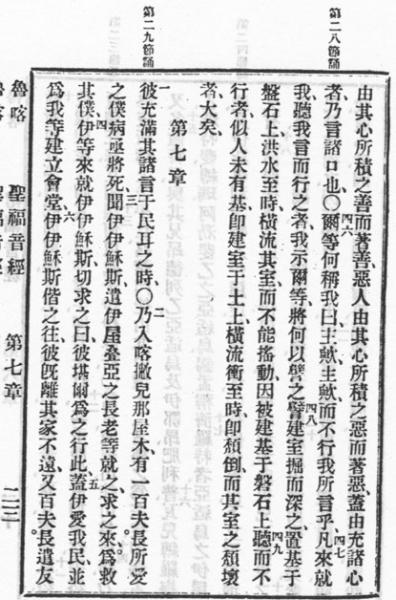 第二八節誦
第二九節誦
由其心所積之善而著善惡人由其心所積之惡而著惡蓋由充諸心
者乃言諸口也〇四六爾等何稱我曰主歟主歟而不行我所言乎四七凡來就
我聽我言而行之者我示爾等將何以譬之四八譬建室掘而深之置基于
盤石上洪水至時橫流其室而不能搖動因被建基于磐石上四九聽而不
行者似人未有基卽建室于土上橫流衝至時卽頹倒而其室之頹壞
者大矣
第七章
一彼充滿其諸言于民耳之時〇二乃入喀撇兒那屋木有一百夫長所愛
之僕病亟將死三聞伊伊穌斯遣伊屋叠亞之長老等就之求之來爲救
其僕四伊等來就伊伊穌斯切求之曰彼堪爾爲之行此五蓋伊愛我民並
爲我等建立會堂六伊伊穌斯偕之往彼旣離其家不遠又百夫長遣友
魯喀 聖福音經 第七章 二三